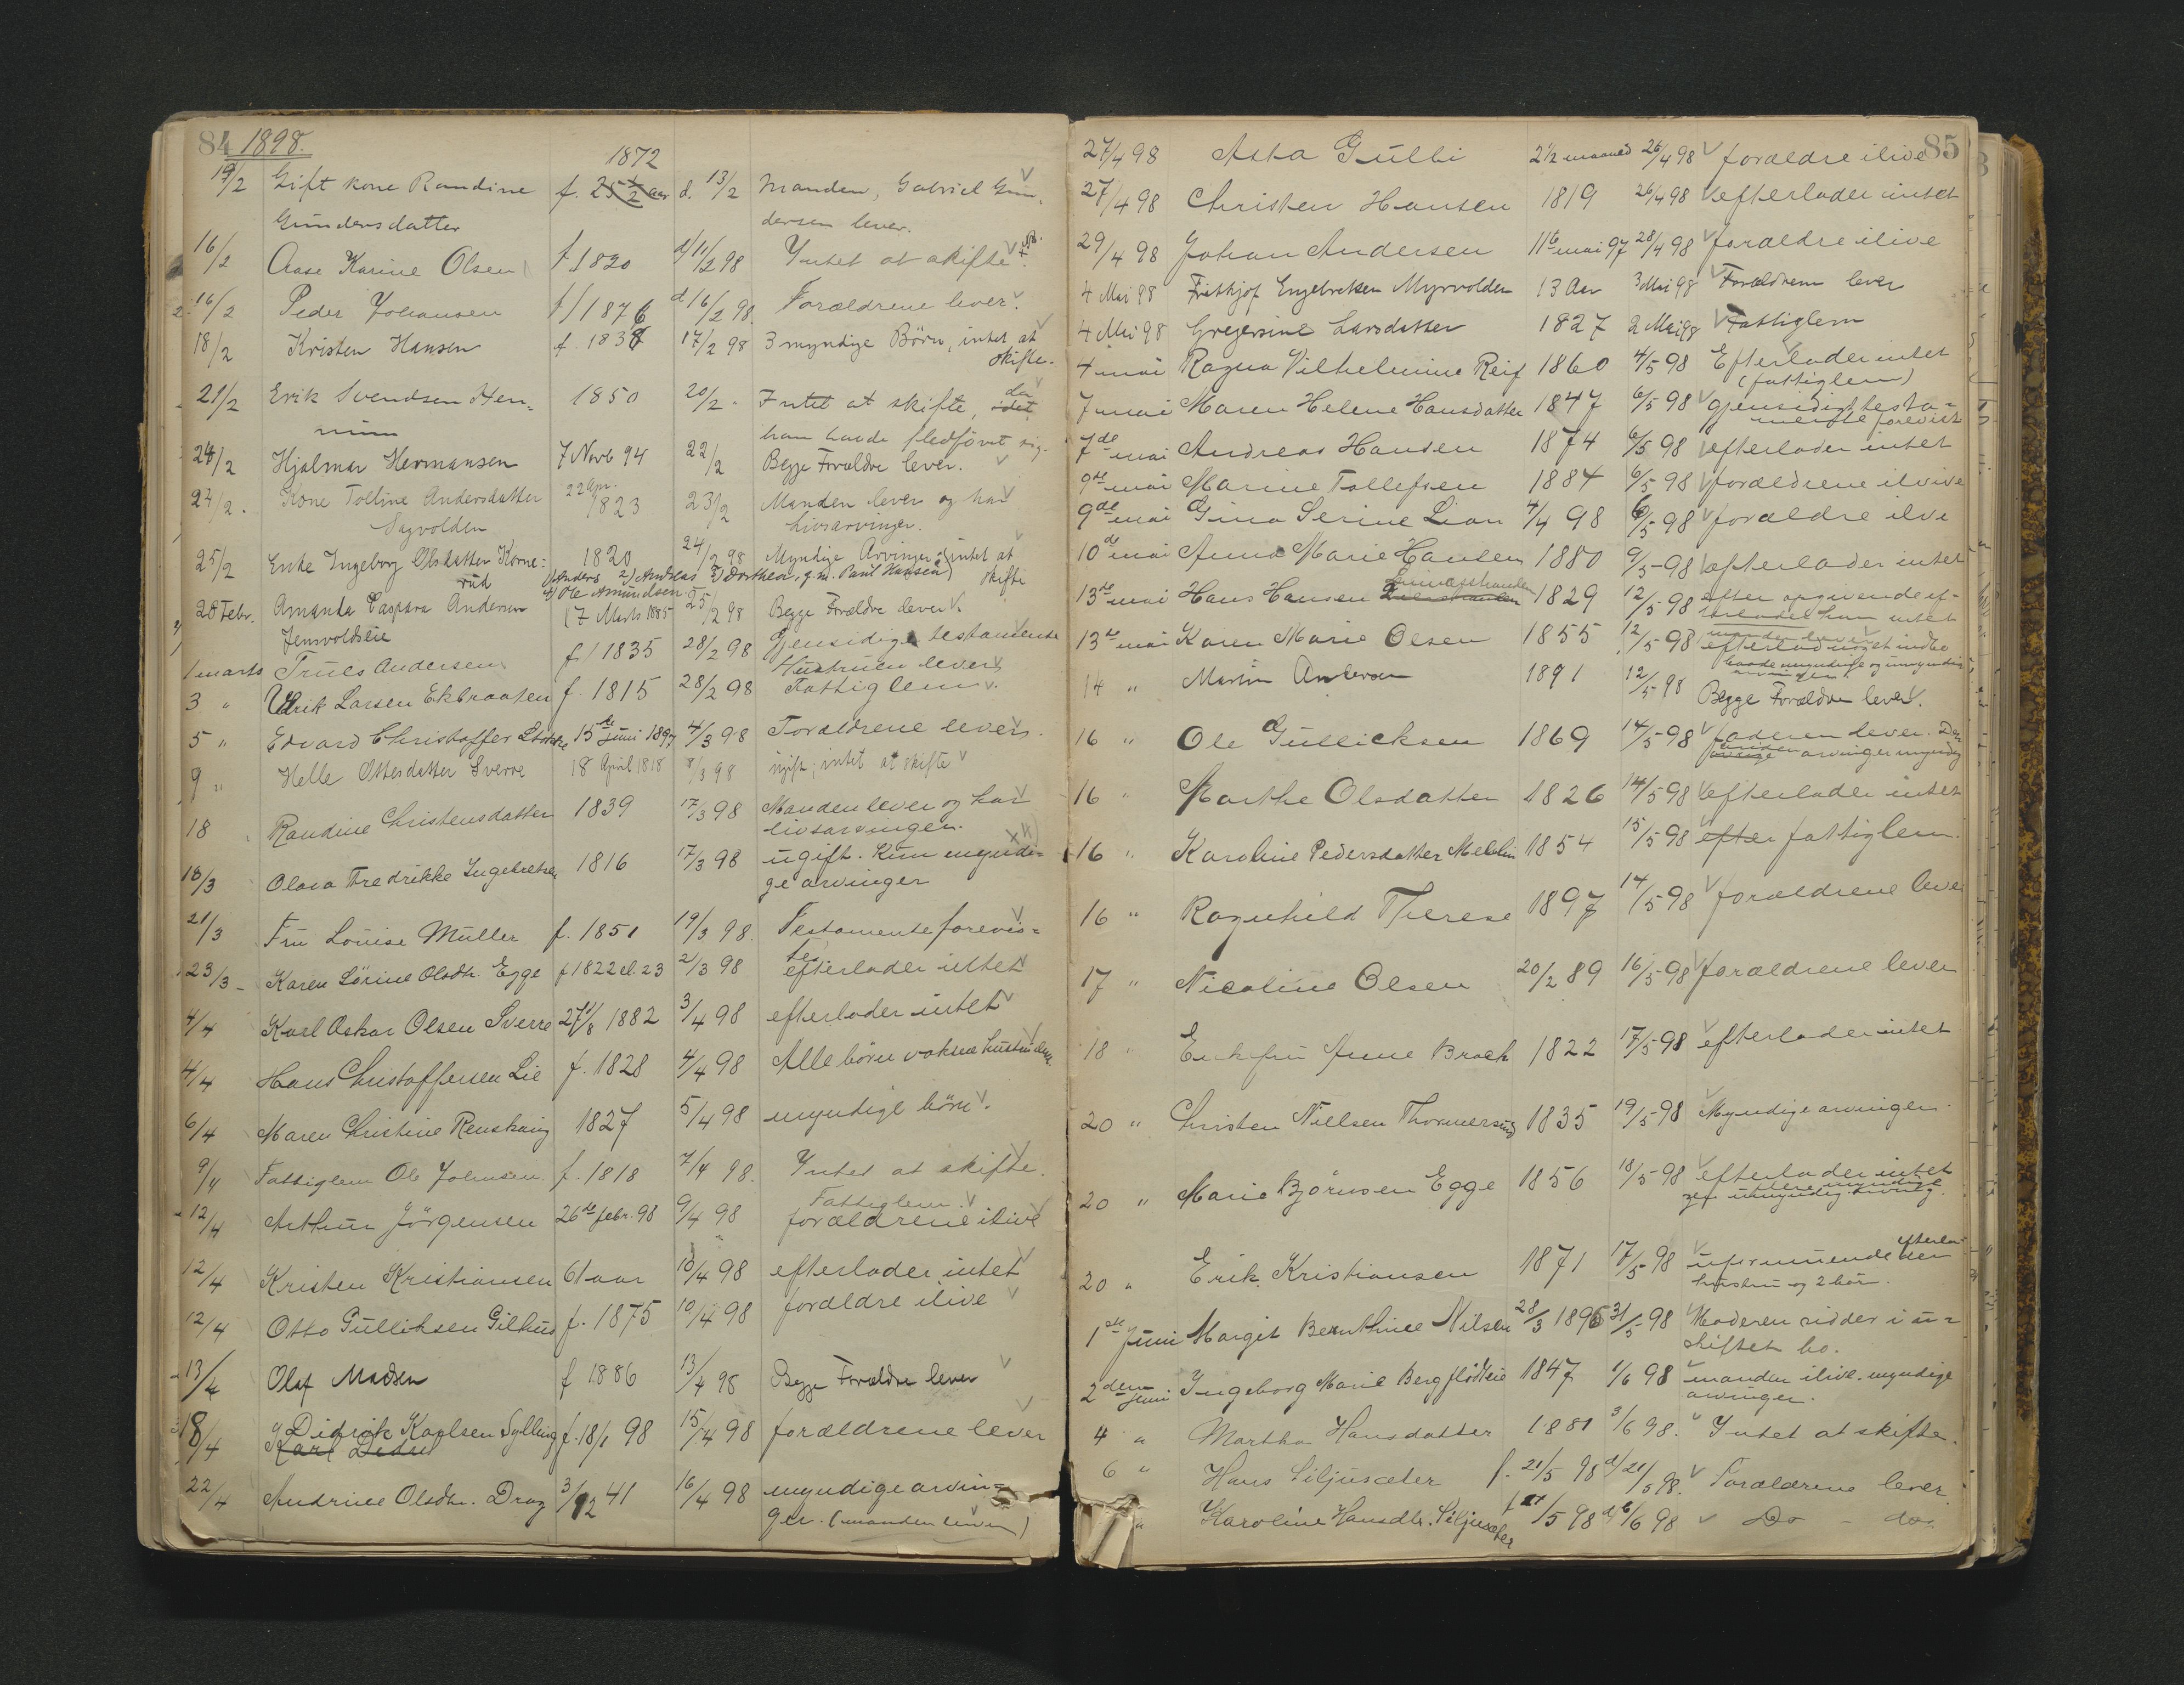 84 1898.
19/2 Gift kone Randine f. 25 1/2 aar 1872 d. 13/2 Manden, Gabriel Gun-
Gundersdatter dersen lever.
16/2 Aase Karine Olsen f 1820 d 11/2 98 Intet at skifte
16/2 Peder Johansen f 1876 d 16/2 98. Forældrene lever.
18/2 Kristen Hansen f. 1838 17/2 98 3 myndige Börn, intet at
skifte.
21/2 Erik Svendsen Hen- 1850 20/2 Intet at skifte, da
han havde fledfört sig.
24/2 Hjalmar Hermansen 7 Novb 94 22/2 Begge Forældre lever.
24/2. Kone Tolline Andersdatter 22 Apr. 1823 23/2 Manden lever og har
Sagvolden Livsarvinger.
25/2 Enke Ingeborg Olsdatter Korne- 1820 24/2 98 Myndige Arvinger, intet at
rud 1) Anders 2) Andreas 3) Dorthea, g.m. Paul Hansen) skifte
4) Ole Amundsen
28 Febr. Amanda Caspara Andersen 17 Marts 1885 25/2 98 Begge Forældre lever.
Jensvoldseie
1 marts Truls Andersen f 1835 28/2 98 Gjensidige testamente
Hustruen lever
3 " Ulrik Larsen Ekbraaten f. 1815 28/2 98 Fattiglem.
5 " Edvard Christoffer Stokke 15de Juni 1897 4/3 98 Forældrene lever.
9 " Helle Ottersdatter Sverre 18 April 1818 8/3 98 ugift; intet at skifte
18 Randine Christensdatter 1839 17/3 98 Manden lever og har
livsarvinger.
18/3 Olava Fredrikke Ingebretsen 1816 17/3 98 ugift. Kun myndi-
ge arvinger
21/3 Fru Louise Müller f. 1851 19/3 98. Testamente forevis-
tes
23/3 Karen Sörine Olsdtr. Egge f 1822 el. 23 21/3 98 efterlader intet
4/4 Karl Oskar Olsen Sverre 27/8 1882 3/4 98 efterlader intet
4/4 Hans Christoffersen Lie f. 1828 4/4 98 Alle börn voksne hustru lever
6/4 Maren Christine Renskaug 1827 5/4 98 myndige börn.
9/4 Fattiglem Ole Johnsen. f. 1818 7/4 98. Intet at skifte.
Fattiglem.
12/4 Arthur Jörgensen 26de febr. 98 9/4 98 forældrene ilive
12/4 Kristen Kristiansen 61 aar 10/4 98 efterlader intet
12/4 Otto Gulliksen Gilhus f. 1875 10/4 98 forældre ilive
13/4 Olaf Madsen f 1886 13/4 98 Begge Forældre lever
18/4 Didrik Karlsen Sylling f. 18/1 98 15/4 98 forældrene lever
22/4 Andrine Olsdtr. Drog 3/12 41 16/4 98 myndige arvin-
ger. (manden lever)
85
27/4 98 Asta Gulli 2 1/2 maaned 26/4 98 forældre ilive
27/4 98 Christen Hansen 1819 26/4 98 efterlader intet
29/4 98 Johan Andersen 11te mai 97 28/4 98 forældre ilive
4 Mai 98 Frithjof Engebretsen Myrvolden 13 Aar 3 Mai 98 Forældrene lever
4 Mai 98 Gregersine Larsdatter 1827 2 Mai 98 Fattiglem
4 mai Ragna Vilhelmine Reif 1860 4/5 98 Efterlader intet
(fattiglem)
7 mai Maren Helene Hansdatter 1847 6/5 98 gjensidigt testa-
mente forevist
7de mai Andreas Hansen 1874 6/5 98 efterlader intet
9de mai Marine Tollefsen 1884 6/5 98 forældrene ilvive
9de mai Gina Serine Lian 4/4 98 6/5 98 forældre ilve
10de mai Anna Marie Hansen 1880 9/5 98 efterlader intet
13de mai Hans Hansen 1829 12/5 98 efter opgivende ef-
terlader han intet
13de mai Karen Marie Olsen 1855 12/5 98 manden lever
efterlod noget indbo
baade myndige og umyndige
arvinger.
14 " Martin Andersen 1891 12/5 98 Begge Forældre lever.
16 " Ole Gullicksen 1869 14/5 98 faderen lever. Des-
foruden arvinger myndig
16 " Marthe Olsdatter 1826 14/5 98 efterlader intet
16 " Karoline Pedersdatter Mellin 1854 15/5 98 efter fattiglem.
16 " Ragnhild Therese 1897 14/5 98 forældrene lever
17 " Nicoline Olsen 20/2 89 16/5 98 forældrene lever
18 " Enkefru Anne Broch 1822 17/5 98 efterlader intet
20 " Christen Nielsen Thormersrud 1835 19/5 98 Myndige arvinger.
20 " Marie Björnsen Egge 1856 18/5 98 efterlader intet
umyndig arving.
20 " Erik Kristiansen 1871 17/5 98 uformuende efterla-
der
hustru og 2 börn.
1ste Juni Margit Bernthine Nilsen 28/3 1896 31/5 98 Moderen sidder i u-
skiftet bo.
2den Juni Ingeborg Marie Bergflödteie 1847 1/6 98 manden ilive. myndige
arvinger.
4 " Martha Hansdatter 1881 3/6 98. Intet at skifte.
6 " Hans Siljusæter f. 21/5 98 d 21/5 98. Forældrene lever.
" Karoline Hansdtr. Siljusæter f 21/5 98 d 6/6 98 Do - do.